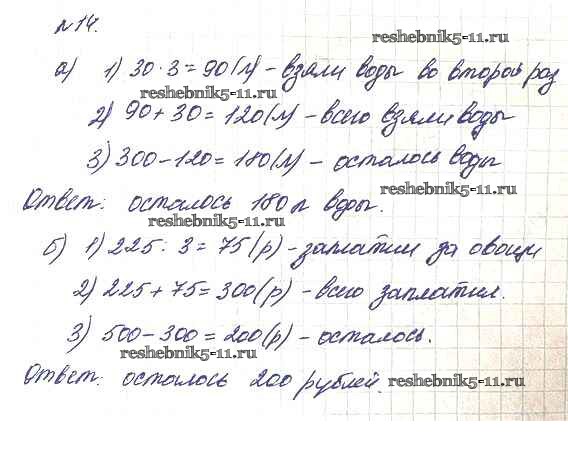 №14.
reshebnik5-11.ru
а) 1) 30·3=90(л) - взяли воды во второй раз
reshebnik5-11.ru
2) 90+30=120(л) - всего взяли воды
3) 300-120=180(л) - осталось воды
reshebnik5-11.ru
Ответ: осталось 180л воды.
reshebnik5-11.ru
б) 1) 225:3=75(р) - заплатил за овощи
2) 225+75=300(р) - всего заплатил.
3) 500-300=200(р) - осталось.
reshebnik5-11.ru
Ответ: осталось 200 рублей.
reshebnik5-11.ru